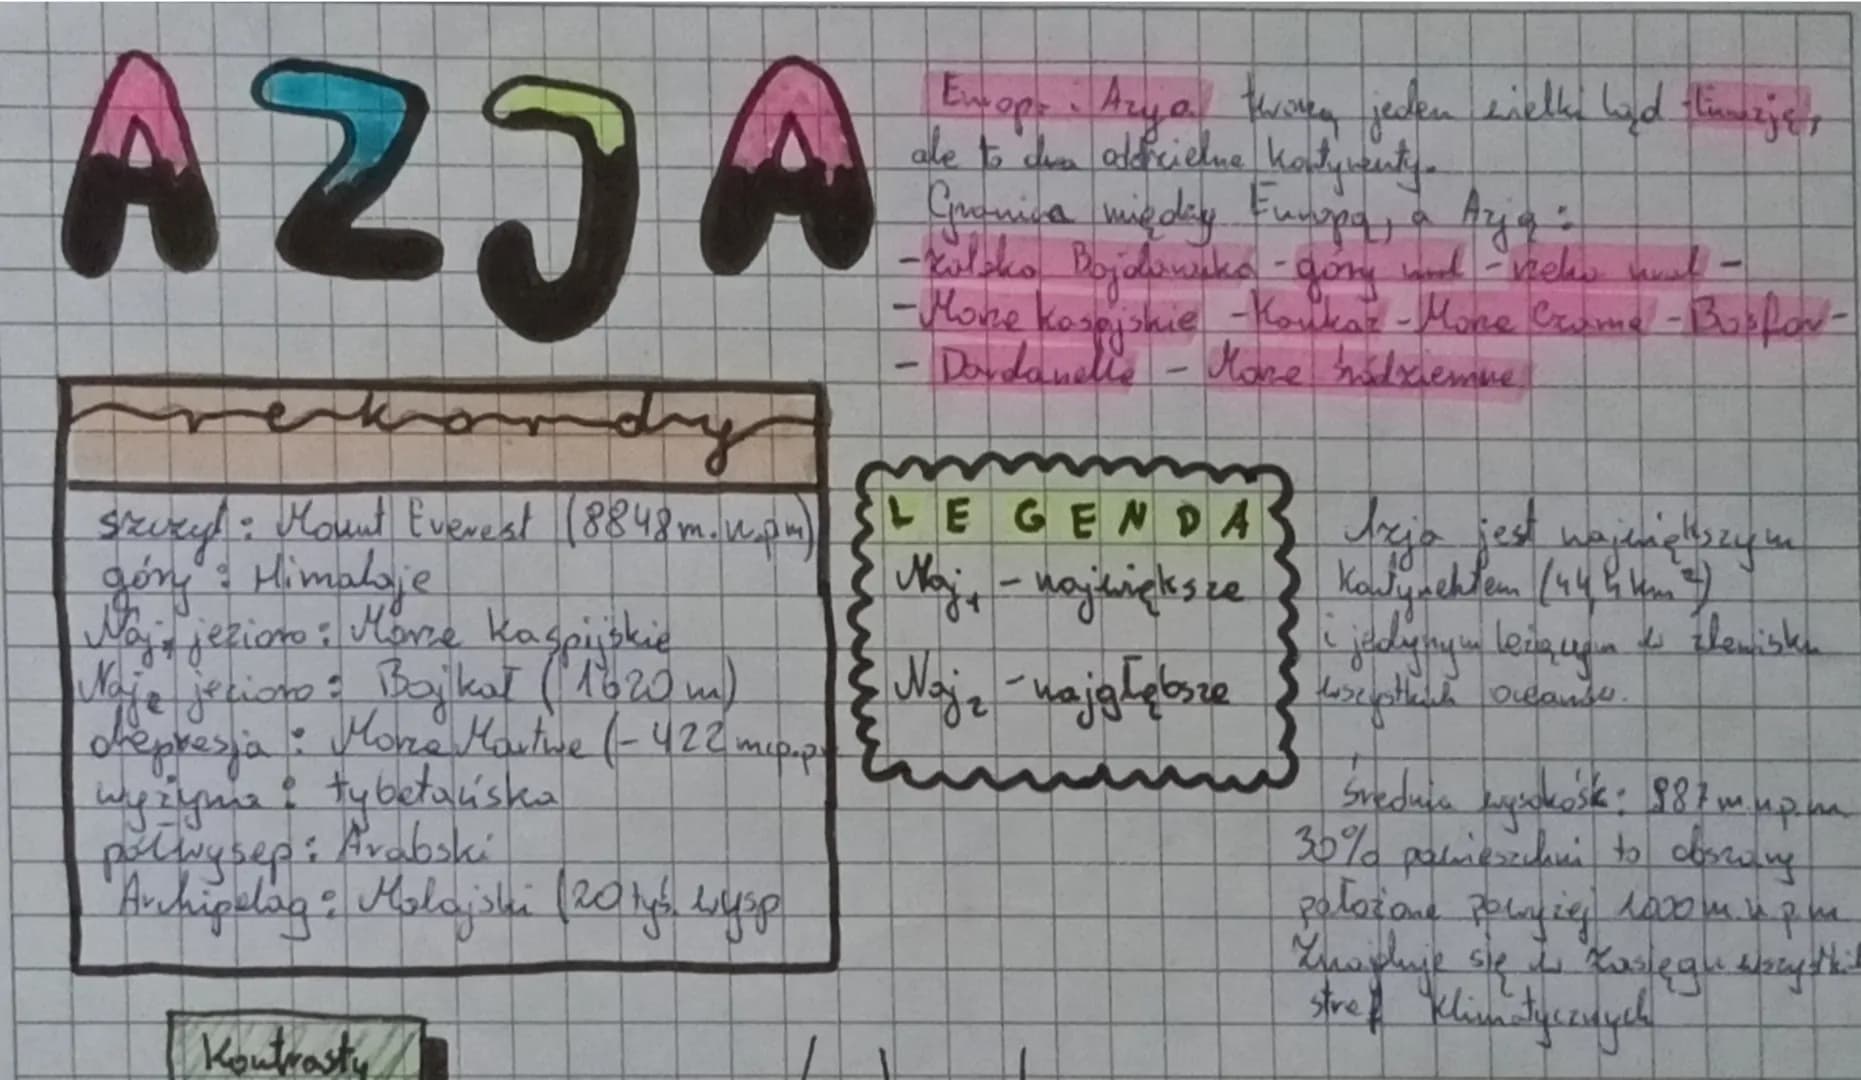 AZJA
Europa i Azja tworzą jeden wielki ląd - Eurazję,
ale to dwa oddzielne kontynenty.
Granica między Europą, a Azją:
- Zatoka Bajdaracka - góry ural - rzeka ural -
- Morze kaspijskie - Kaukaz - Morze Czarne - Bosfor -
- Dardanelle - Morze śródziemne
rekordy
szczyt: Mount Everest (8848m.n.pm)
góry: Himalaje
Naj1 jezioro: Morze kaspijskie
Naj2 jezioro: Bajkał (1620m)
depresja: Morze Martwe (-422 m.p.p.
wyżyna: tybetańska
półwysep: Arabski
Archipelag: Malajski (20 tyś. wysp
LEGENDA
Naj1 - największe
Naj2 - najgłębsze
Azja jest największym
kontynentem (44,5 km²)
i jedynym leżącym w zlewisku
wszystkich oceanów.
Średnia wysokość: 987 m.n.p.m
30% powierzchni to obszary
położone powyżej 1000 m.n.p.m
Znajduje się w zasięgu
stref klimatycznych
Kontrasty